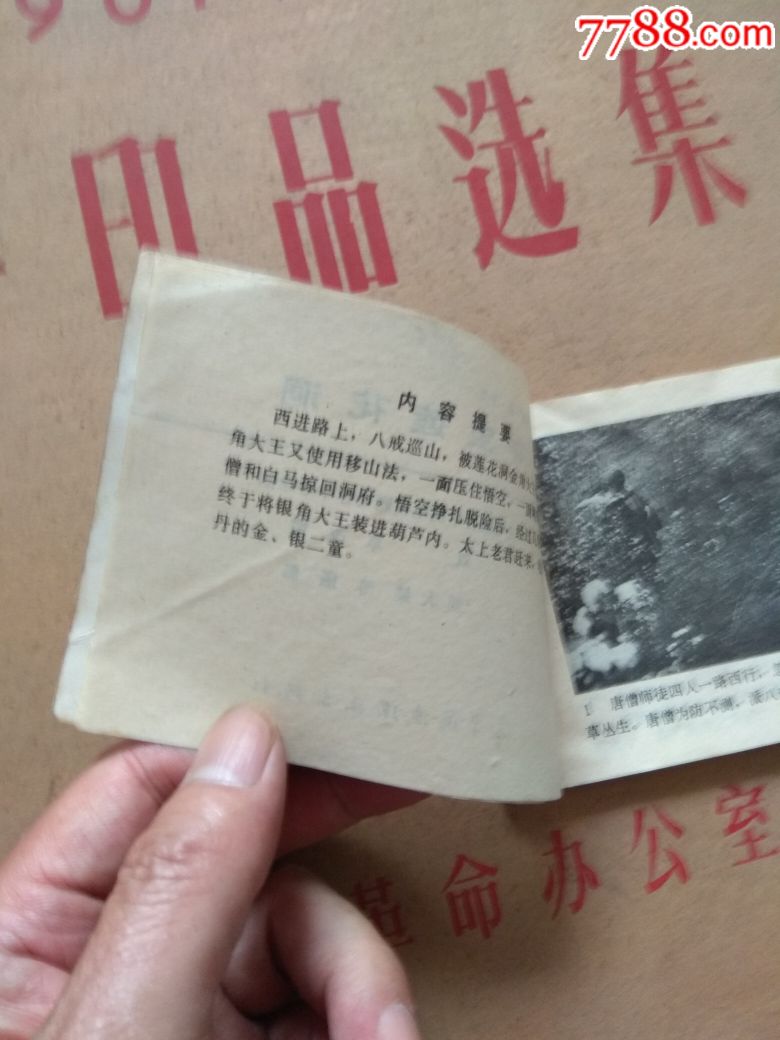 7788.com
印品选集
内容提要
西进路上，八戒巡山，被莲花洞金角大
角大王又使用移山法，一面压住悟空，一面
僧和白马掠回洞府。悟空挣扎脱险后，经过
终于将银角大王装进葫芦内。太上老君赶来，
丹的金、银二童。
1 唐僧师徒四人一路西行，
草丛生。唐僧为防不测，派八
革命办公室